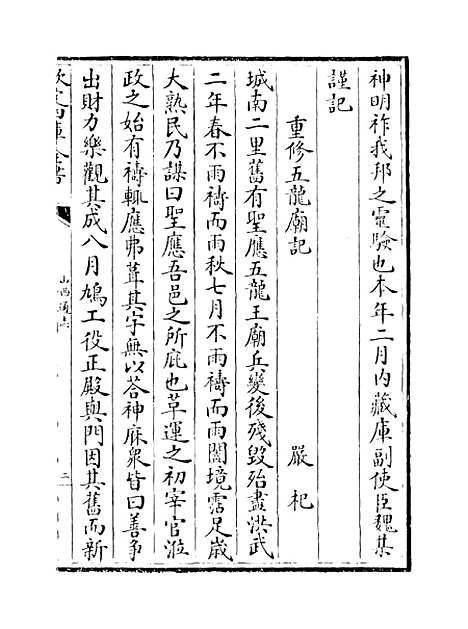 神明祚我邦之靈驗也本年二月内藏庫副使臣魏某
謹記
重修五龍廟記 嚴杞
城南二里舊有聖應五龍王廟兵變後殘毀殆盡洪武
二年春不雨禱而雨秋七月不雨禱而雨闔境霑足歲
大熟民乃謀曰聖應吾邑之所庇也草運之初宰官涖
政之始有禱輒應弗葺其宇無以荅神庥衆皆曰善争
出財力樂觀其成八月鳩工役正殿與門因其舊而新
欽定四庫全書
山西通志